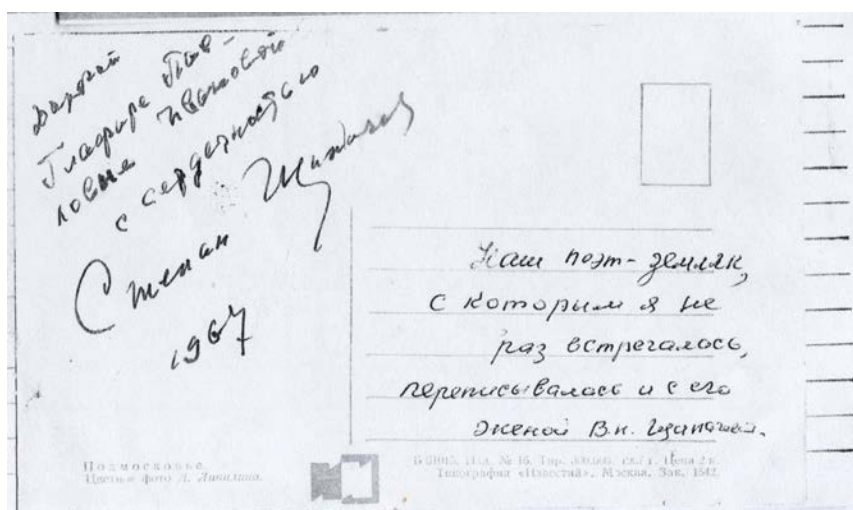 Дорогой
Глафире Пав-
ловне
с сердечностью
Степан Щипачев
1967
Наш поэт-земляк,
с которым я не
раз встречалась,
переписывалась и с его
женой В.Н. Щипачевой.
Подмосковье.
Цветное фото Л.
Изд. № 16. Тир. Цена 2 к.
Типография «Известий». Москва. Зак. 1542.